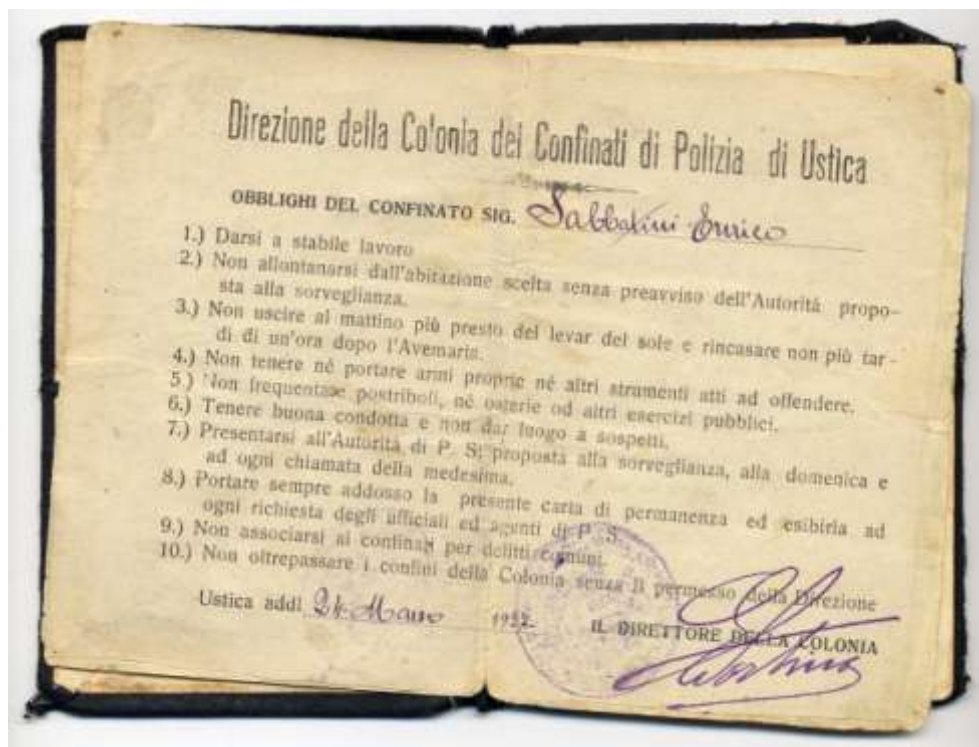 Direzione della Colonia dei Confinati di Polizia di Ustica
OBBLIGHI DEL CONFINATO SIG. Sabbatini Enrico
1.) Darsi a stabile lavoro
2.) Non allontanarsi dall'abitazione scelta senza preavviso dell'Autorità propo-
sta alla sorveglianza.
3.) Non uscire al mattino più presto del levar del sole e rincasare non più tar-
di di un'ora dopo l'Avemaria.
4.) Non tenere né portare armi proprie né altri strumenti atti ad offendere.
5.) Non frequentare postriboli, né osterie od altri esercizi pubblici.
6.) Tenere buona condotta e non dar luogo a sospetti.
7.) Presentarsi all'Autorità di P. S. proposta alla sorveglianza, alla domenica e
ad ogni chiamata della medesima.
8.) Portare sempre addosso la presente carta di permanenza ed esibirla ad
ogni richiesta degli ufficiali ed agenti di P. S.
9.) Non associarsi ai confinati per delitti comuni.
10.) Non oltrepassare i confini della Colonia senza il permesso della Direzione
Ustica addì 24 Marzo 1927
IL DIRETTORE DELLA COLONIA